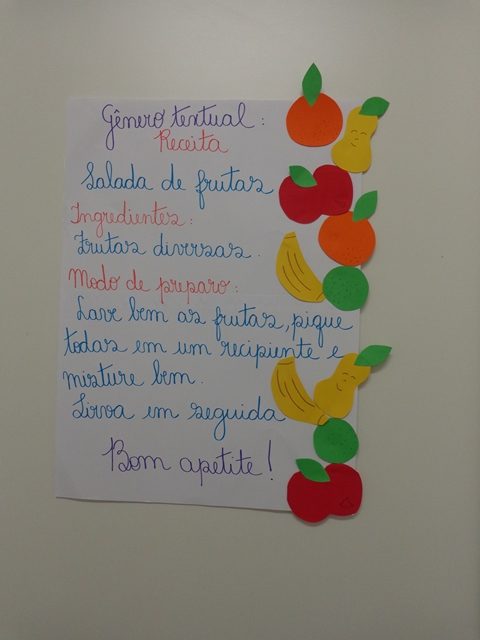 Gênero textual:
Receita
Salada de frutas
Ingredientes:
Frutas diversas.
Modo de preparo:
Lave bem as frutas, pique
todas em um recipiente e
misture bem.
Sirva em seguida
Bom apetite!